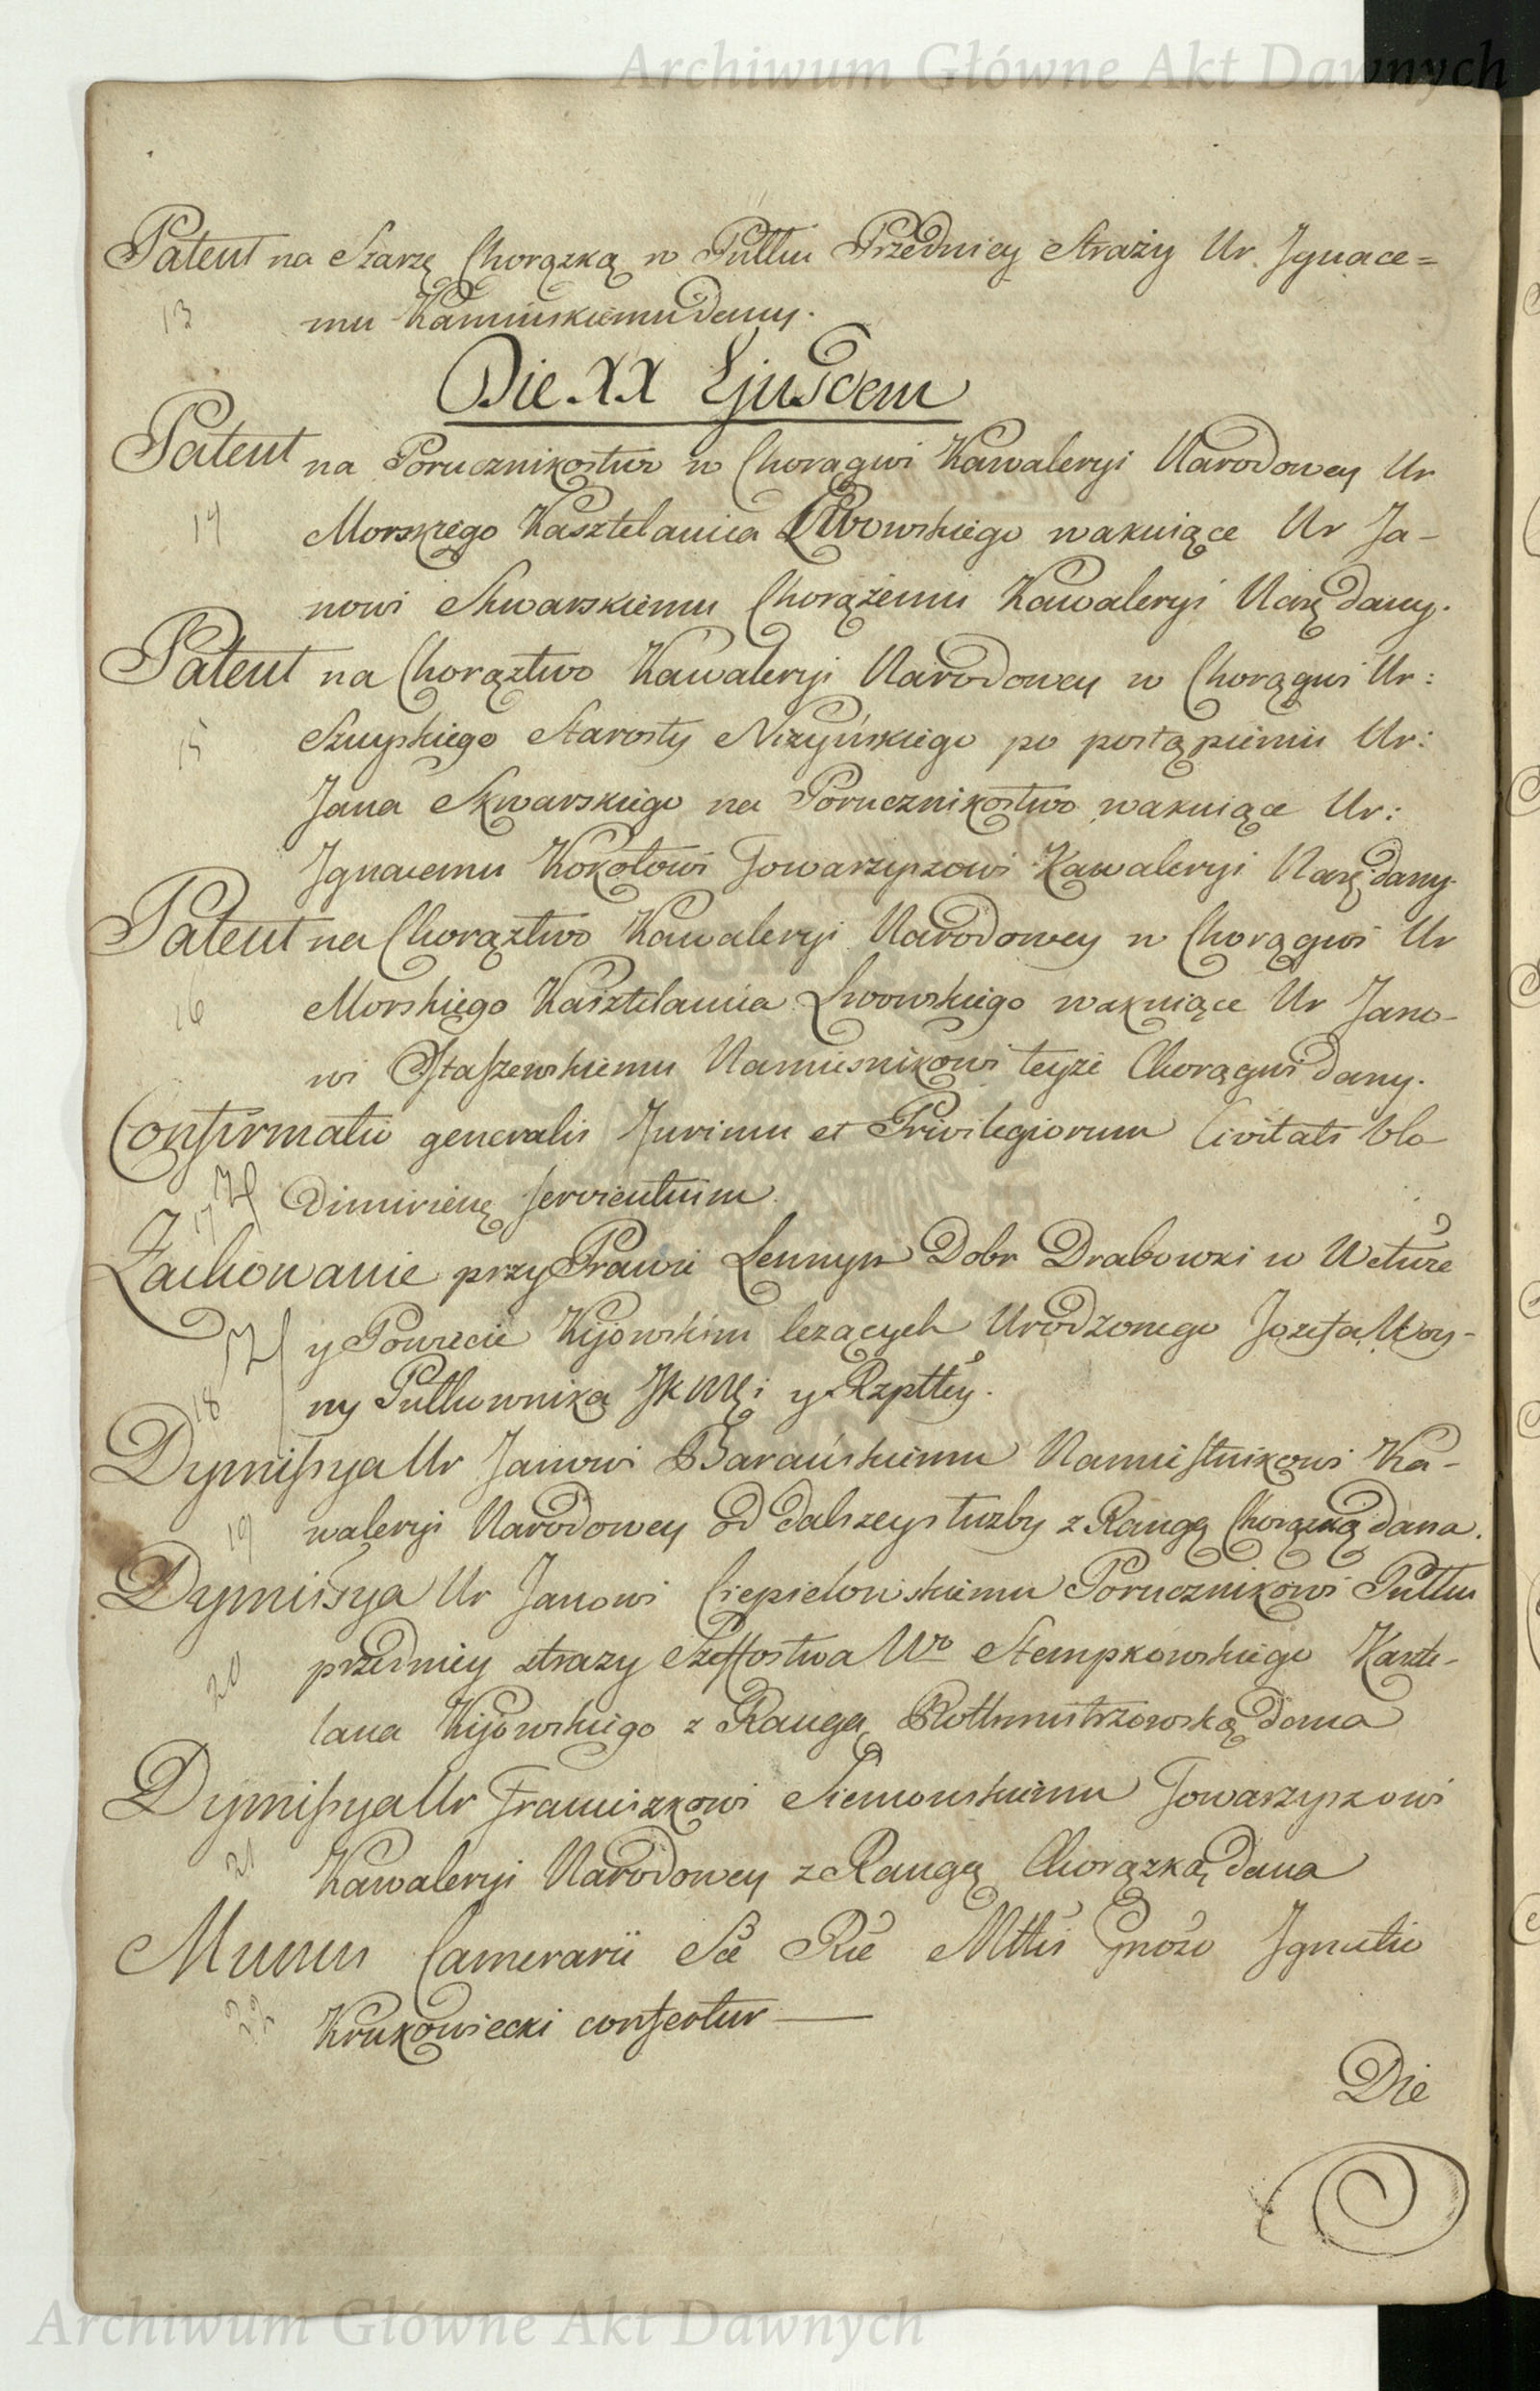 Archiwum Główne Akt Dawnych
Patent na Szarzę Chorązką w Pułku Przedniey Straży Ur. Jgnace=
13 mu Kaminskiemu dany.
Die XX Ejusdem
Patent na Porucznikostwo w Chorągwi Kawaleryi Narodowey Ur
14 Morskiego Kasztelanica Lwowskiego wakuiące Ur Ja-
nowi Skwarskiemu Chorążemu Kawaleryi Narę dany.
Patent na Chorąztwo Kawaleryi Narodowey w Chorągwi Ur:
15 Szuyskiego Starosty Nizyńskiego po postąpieniu Ur:
Jana Skwarskiego na Porucznikostwo wakuiące Ur:
Jgnacemu Kokołowi Towarzyszowi Kawaleryi Narę dany.
Patent na Chorąztwo Kawaleryi Narodowey w Chorągwi Ur
16 Morskiego Kasztelanica Lwowskiego wakuiące Ur Jano-
wi Ostaszewskiemu Namiesnikowi teyże Chorągwi dany.
Confirmatio generalis Jurium et Privilegiorum Civitati Vlo
17 dimirienę servientium.
Zachowanie przy Prawie Lennym Dobr Drabowki w Wctwie
y Powiecie Kijowskim lezących Urodzonego Jozefa Woy-
18 ny Pułkownika JKMci y Rzpttey.
Dymissya Ur Janowi Barańskiemu Namiestnikowi Ka-
19 waleryi Narodowey od dalszey służby z Rangą Chorązką dana.
Dymissya Ur Janowi Ciepielowskiemu Porucznikowi Pułku
20 przedniey strazy Szeffostwa Wo Stempkowskiego Kaszte-
lana Kijowskiego z Rangą Rothmistrzowską dana
Dymissya Ur Franciszkowi Siemonskiemu Towarzyszowi
21 Kawaleryi Narodowey z Rangą Chorązką dana
Munus Camerarii Sæ Ræ Mttis Gnoso Jgnatio
22 Krukowiecki confertur
Die
Archiwum Główne Akt Dawnych